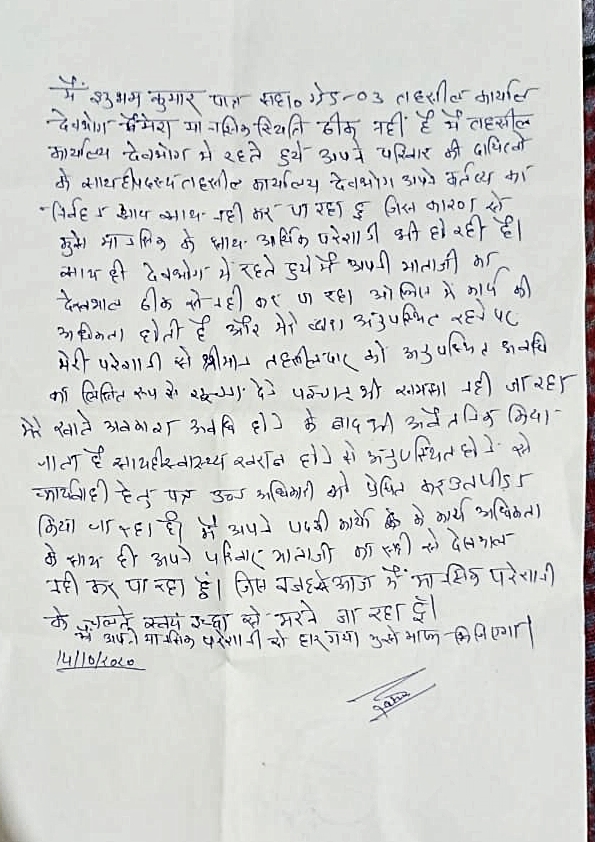 मैं शुभम कुमार पात्र सहा० ग्रेड-03 तहसील कार्याल
देवभोग में मेरा मानसिक स्थिति ठीक नहीं है मैं तहसील
कार्यालय देवभोग मे रहते हुये अपने परिवार की दायित्वो
के साथ ही पदस्थ तहसील कार्यालय देवभोग अपने कर्तव्य का
निर्वहन साथ साथ नही कर पा रहा हु जिस कारण से
मुझे मानसिक के साथ आर्थिक परेशानी भी हो रही है।
साथ ही देवभोग में रहते हुये मैं अपनी माताजी का
देखभाल ठीक से नही कर पा रहा ऑफिस में कार्य की
अधिकता होती है और मेरे द्वारा अनुपस्थित रहने पर
मेरी परेशानी से श्रीमान तहसीलदार को अनुपस्थित अवधि
का लिखित रूप से सूचना देने पश्चात भी समझा नही जा रहा
मेरे खाते अवकाश अवधि होने के बाद भी अवैतनिक किया
जाता है साथ ही स्वास्थ्य खराब होने से अनुपस्थित होने से
कार्यवाही हेतु पत्र उच्च अधिकारी को प्रेषित कर उत्पीड़न
किया जा रहा है। मैं अपने पदकी कार्यो के कार्य अधिकता
के साथ ही अपने परिवार माताजी का सही से देखभाल
नही कर पा रहा हूं। जिस वजह से आज मैं मानसिक परेशानी
के चलते स्वयं इच्छा से मरने जा रहा हूँ।
मैं अपनी मानसिक परेशानी से हार गया मुझे माफ किजिएगा।
14/10/2020